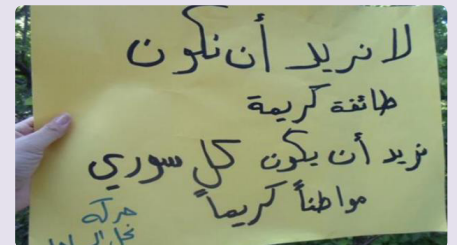 لا نريد أن نكون
طائفة كريمة
نريد أن يكون كل سوري
مواطناً كريماً
حركة
نحل